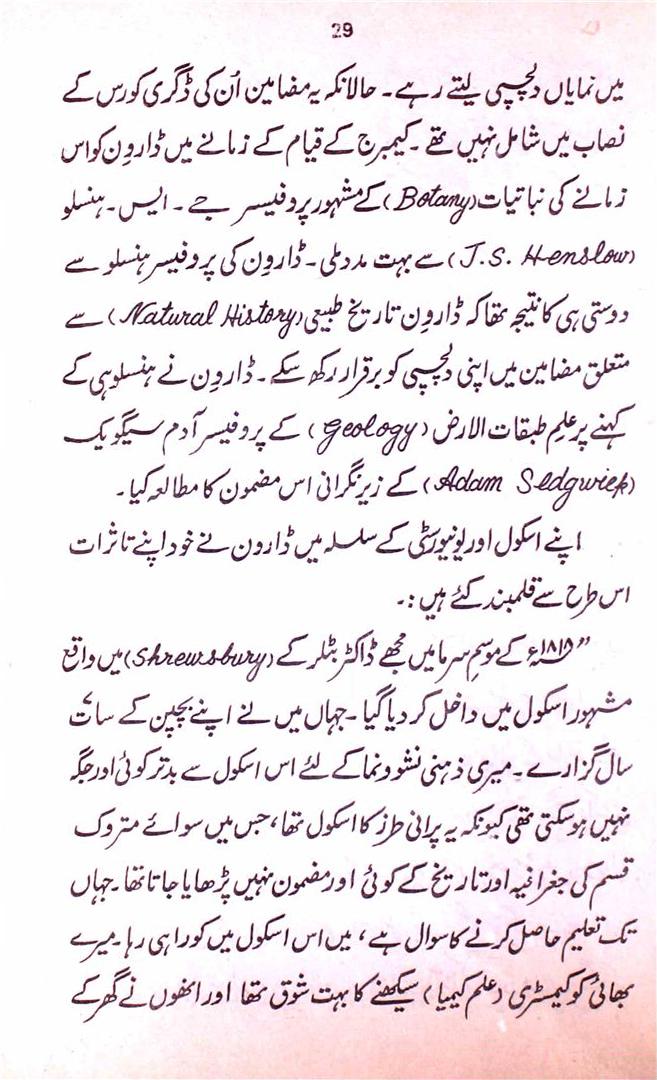 29
میں نمایاں دلچسپی لیتے رہے۔ حالانکہ یہ مضامین اُن کی ڈگری کورس کے
نصاب میں شامل نہیں تھے۔ کیمبرج کے قیام کے زمانے میں ڈارون کو اس
زمانے کی نباتیات (Botany) کے مشہور پروفیسر جے۔ ایس۔ ہنسلو
(J.S. Henslow) سے بہت مدد ملی۔ ڈارون کی پروفیسر ہنسلو سے
دوستی ہی کا نتیجہ تھا کہ ڈارون تاریخ طبیعی (Natural History) سے
متعلق مضامین میں اپنی دلچسپی کو برقرار رکھ سکے۔ ڈارون نے ہنسلو ہی کے
کہنے پر علم طبقات الارض (Geology) کے پروفیسر آدم سیگویک
(Adam Sedgwick) کے زیر نگرانی اس مضمون کا مطالعہ کیا۔
اپنے اسکول اور یونیورسٹی کے سلسلہ میں ڈارون نے خود اپنے تاثرات
اس طرح سے قلمبند کئے ہیں:۔
"۱۸۱۸ء کے موسم سرما میں مجھے ڈاکٹر بٹلر کے (Shrewsbury) میں واقع
مشہور اسکول میں داخل کر دیا گیا۔ جہاں میں نے اپنے بچپن کے سات
سال گزارے۔ میری ذہنی نشوونما کے لئے اس اسکول سے بدتر کوئی اور جگہ
نہیں ہوسکتی تھی کیونکہ یہ پرانی طرز کا اسکول تھا، جس میں سوائے متروک
قسم کی جغرافیہ اور تاریخ کے کوئی اور مضمون نہیں پڑھایا جاتا تھا۔ جہاں
تک تعلیم حاصل کرنے کا سوال ہے، میں اس اسکول میں کورا ہی رہا۔ میرے
بھائی کو کیمسٹری (علم کیمیا) سیکھنے کا بہت شوق تھا اور انھوں نے گھر کے